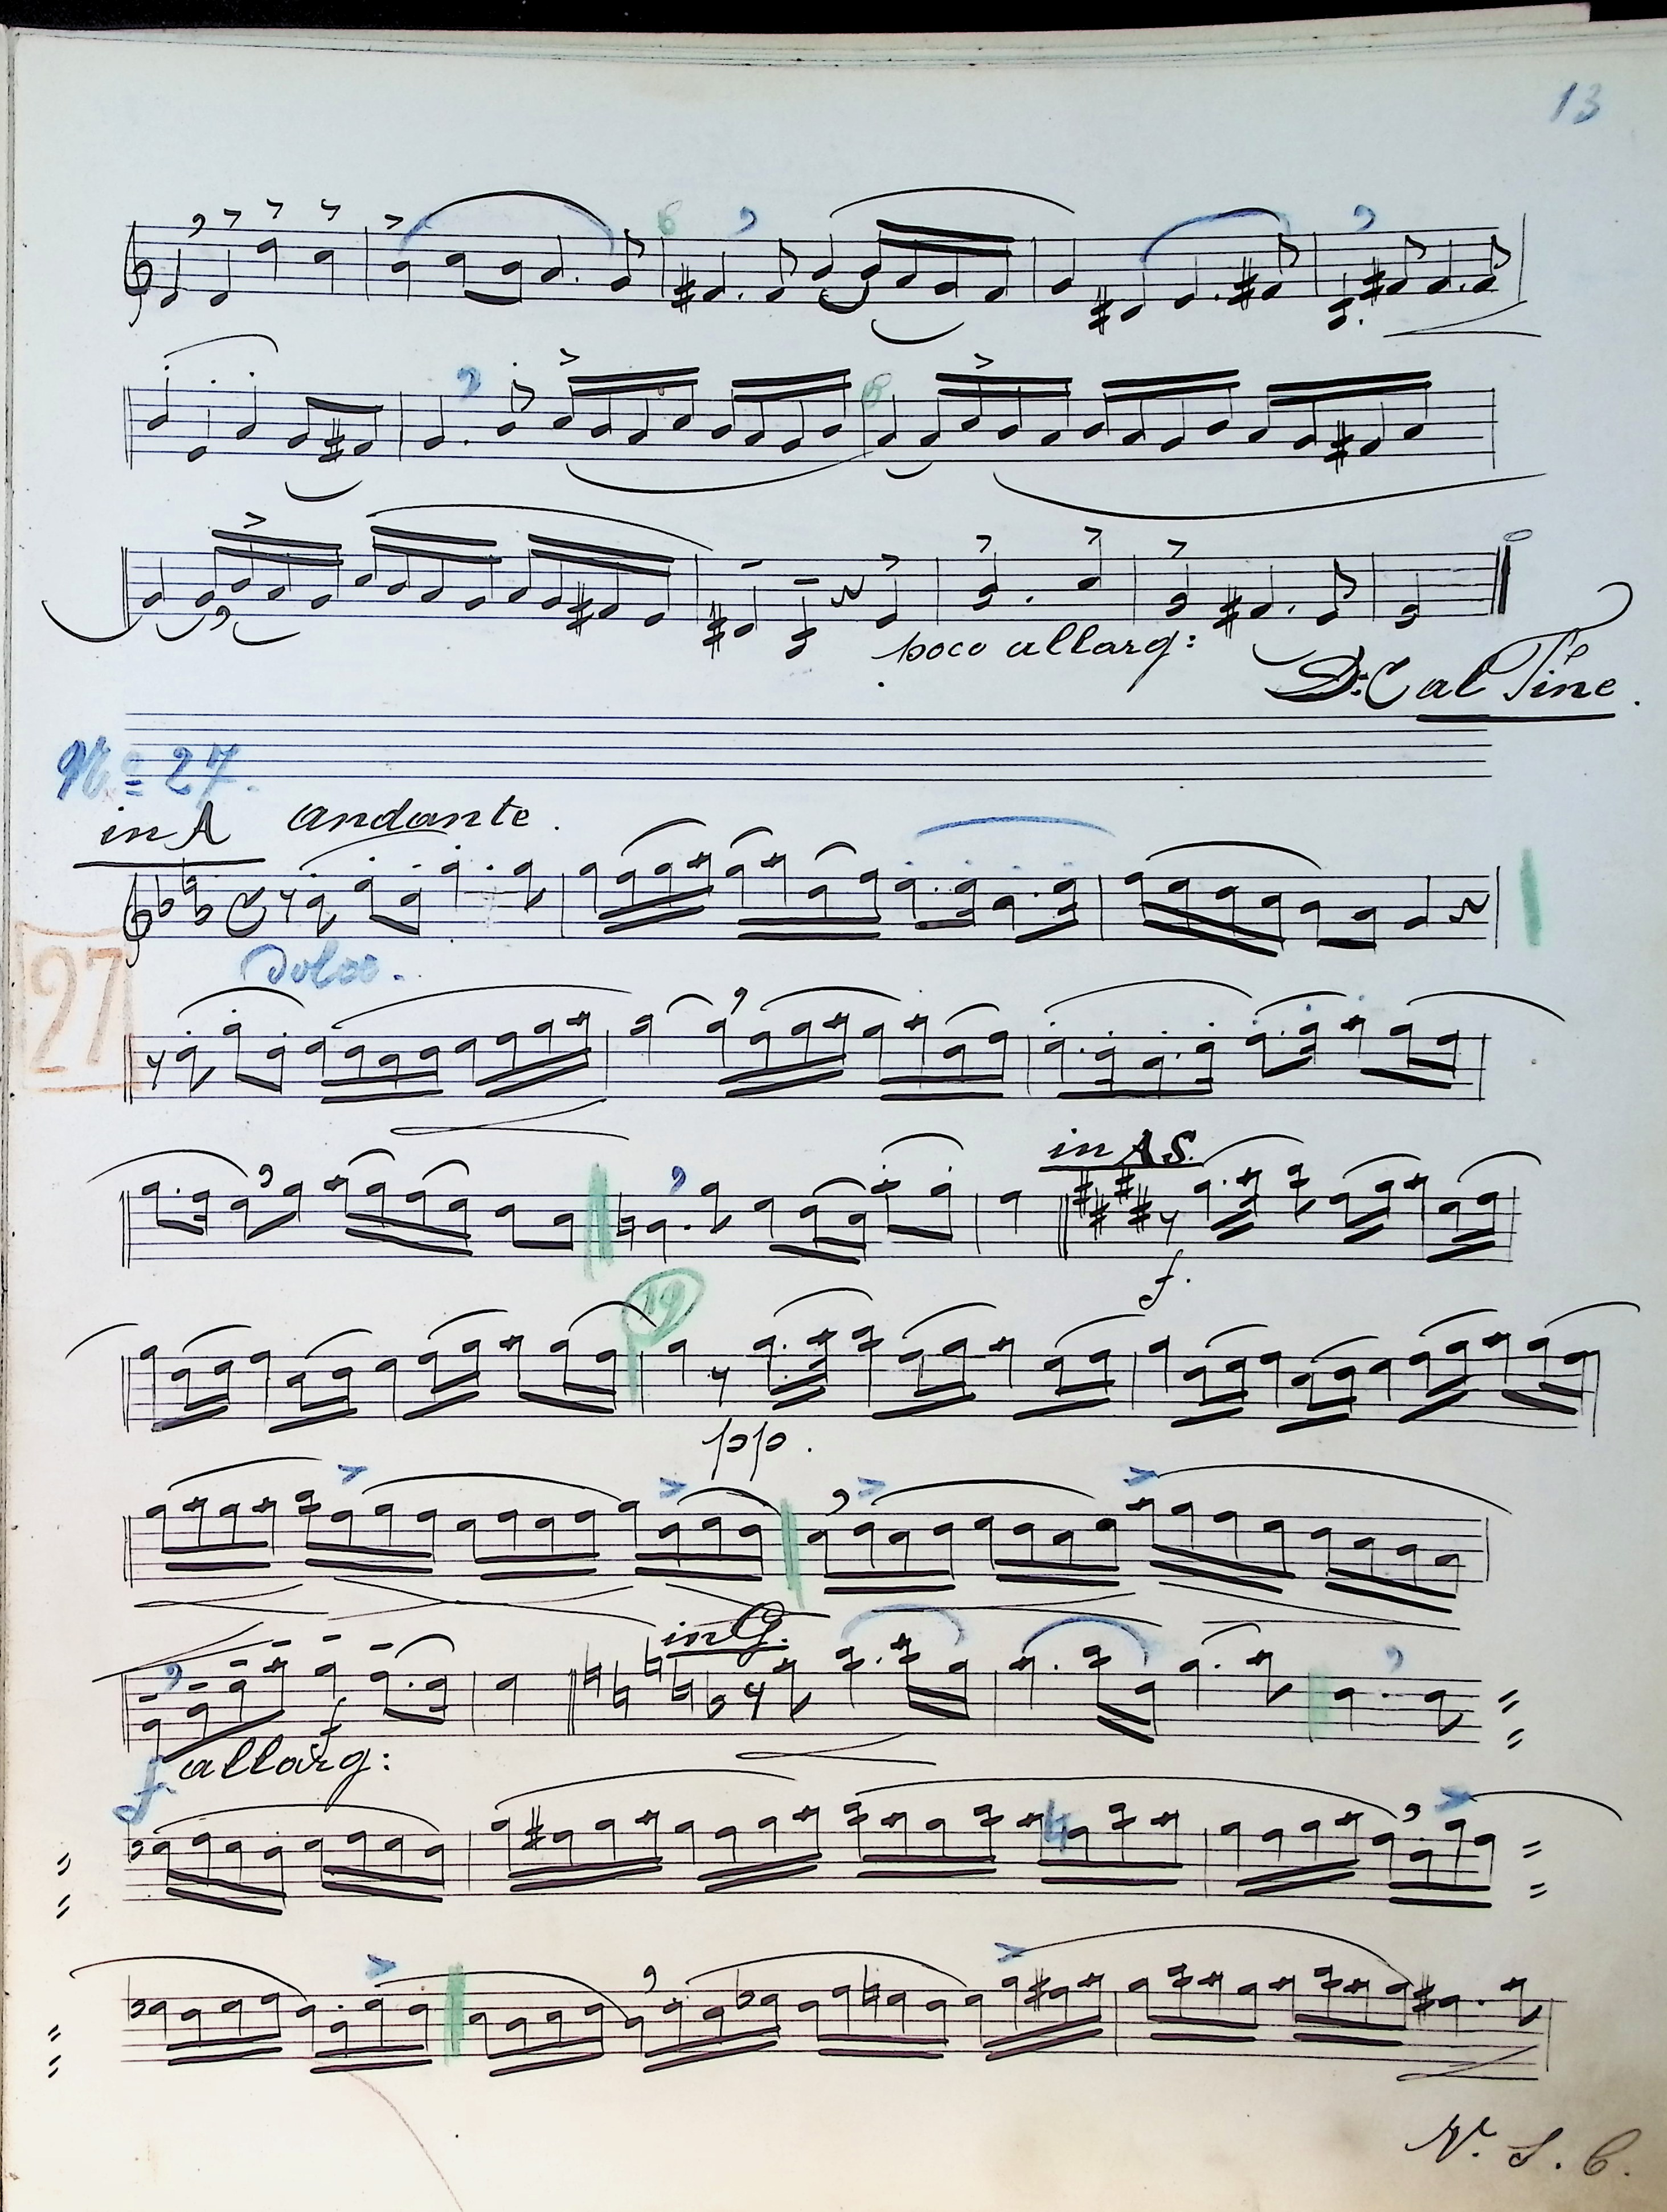 13
poco allarg:
D:C al Fine.
No 27.
in A andante.
27
Dolce.
in AS.
f.
19
pp.
in G.
f allarg:
f
V. S. C.